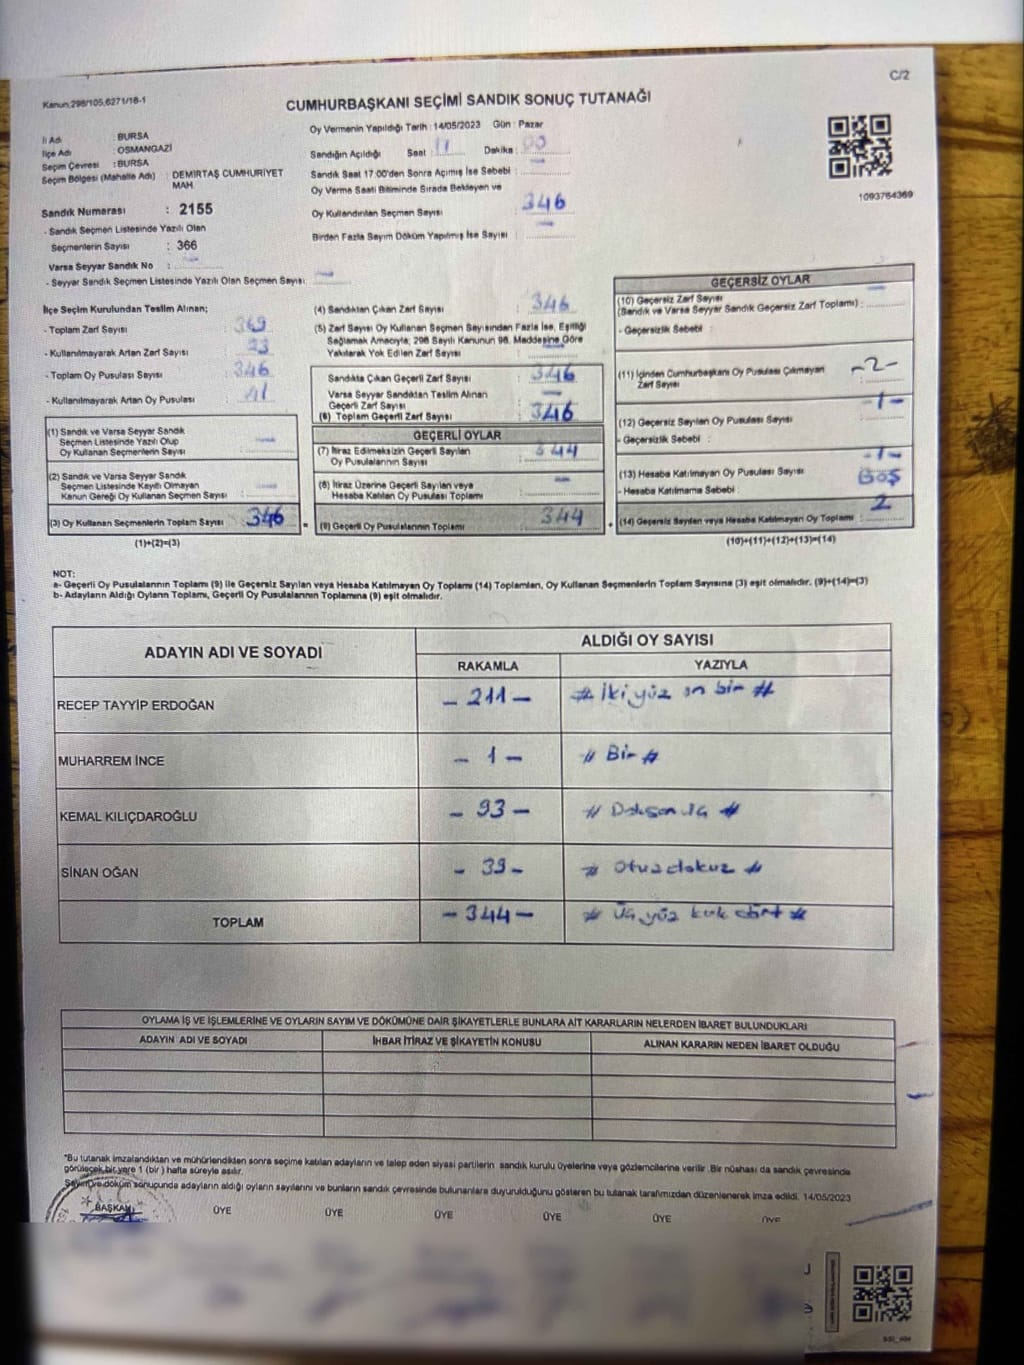 C/2
Kanun:298/105,6271/18-1
CUMHURBAŞKANI SEÇİMİ SANDIK SONUÇ TUTANAĞI
İl Adı : BURSA
İlçe Adı : OSMANGAZİ
Seçim Çevresi : BURSA
Seçim Bölgesi (Mahalle Adı) : DEMİRTAŞ CUMHURİYET MAH.
Sandık Numarası : 2155
- Sandık Seçmen Listesinde Yazılı Olan
Seçmenlerin Sayısı : 366
Varsa Seyyar Sandık No :
- Seyyar Sandık Seçmen Listesinde Yazılı Olan Seçmen Sayısı:
Oy Vermenin Yapıldığı Tarih : 14/05/2023 Gün : Pazar
Sandığın Açıldığı Saat : Dakika :
Sandık Saat 17:00'den Sonra Açımış İse Sebebi :
Oy Verme Saati Bitiminde Sırada Bekleyen ve
Oy Kullandırılan Seçmen Sayısı : 346
Birden Fazla Sayım Döküm Yapılmış İse Sayısı :
1093764369
İlçe Seçim Kurulundan Teslim Alınan;
- Toplam Zarf Sayısı : 369
- Kullanılmayarak Artan Zarf Sayısı : 23
- Toplam Oy Pusulası Sayısı : 346
- Kullanılmayarak Artan Oy Pusulası :
(1) Sandık ve Varsa Seyyar Sandık
Seçmen Listesinde Yazılı Olup
Oy Kullanan Seçmenlerin Sayısı :
(2) Sandık ve Varsa Seyyar Sandık
Seçmen Listesinde Kayıtlı Olmayan
Kanun Gereği Oy Kullanan Seçmen Sayısı :
(3) Oy Kullanan Seçmenlerin Toplam Sayısı : 346
(1)+(2)=(3)
(4) Sandıktan Çıkan Zarf Sayısı : 346
(5) Zarf Sayısı Oy Kullanan Seçmen Sayısından Fazla İse, Eşitliği
Sağlamak Amacıyla; 298 Sayılı Kanunun 98. Maddesine Göre
Yakılarak Yok Edilen Zarf Sayısı :
Sandıkta Çıkan Geçerli Zarf Sayısı : 346
Varsa Seyyar Sandıktan Teslim Alınan
Geçerli Zarf Sayısı : —
(6) Toplam Geçerli Zarf Sayısı : 346
GEÇERLİ OYLAR
(7) İtiraz Edilmeksizin Geçerli Sayılan
Oy Pusulalarının Sayısı : 344
(8) İtiraz Üzerine Geçerli Sayılan veya
Hesaba Katılan Oy Pusulası Toplamı :
(9) Geçerli Oy Pusulalarının Toplamı : 344
GEÇERSİZ OYLAR
(10) Geçersiz Zarf Sayısı
(Sandık ve Varsa Seyyar Sandık Geçersiz Zarf Toplamı) :
- Geçersizlik Sebebi :
(11) İçinden Cumhurbaşkanı Oy Pusulası Çıkmayan
Zarf Sayısı : -2-
(12) Geçersiz Sayılan Oy Pusulası Sayısı : -1-
- Geçersizlik Sebebi :
(13) Hesaba Katılmayan Oy Pusulası Sayısı : -1-
- Hesaba Katılmama Sebebi : BOŞ
(14) Geçersiz Sayılan veya Hesaba Katılmayan Oy Toplamı : 2
(10)+(11)+(12)+(13)=(14)
NOT:
a- Geçerli Oy Pusulalarının Toplamı (9) ile Geçersiz Sayılan veya Hesaba Katılmayan Oy Toplamı (14) Toplamları, Oy Kullanan Seçmenlerin Toplam Sayısına (3) eşit olmalıdır. (9)+(14)=(3)
b- Adayların Aldığı Oyların Toplamı, Geçerli Oy Pusulalarının Toplamına (9) eşit olmalıdır.
ADAYIN ADI VE SOYADI
ALDIĞI OY SAYISI
RAKAMLA YAZIYLA
RECEP TAYYİP ERDOĞAN - 211 - # İki yüz on bir #
MUHARREM İNCE - 1 - # Bir #
KEMAL KILIÇDAROĞLU - 93 - # Doksan üç #
SİNAN OĞAN - 39 - # Otuz dokuz #
TOPLAM - 344 - # Üç yüz kırk dört #
OYLAMA İŞ VE İŞLEMLERİNE VE OYLARIN SAYIM VE DÖKÜMÜNE DAİR ŞİKAYETLERLE BUNLARA AİT KARARLARIN NELERDEN İBARET BULUNDUKLARI
ADAYIN ADI VE SOYADI İHBAR İTİRAZ VE ŞİKAYETİN KONUSU ALINAN KARARIN NEDEN İBARET OLDUĞU
*Bu tutanak imzalandıktan ve mühürlendikten sonra seçime katılan adayların ve talep eden siyasi partilerin sandık kurulu üyelerine veya gözlemcilerine verilir .Bir nüshası da sandık çevresinde
görülecek bir yere 1 (bir ) hafta süreyle asılır.
Sayım ve döküm sonucunda adayların aldığı oyların sayılarını ve bunların sandık çevresinde bulunanlara duyurulduğunu gösteren bu tutanak tarafımızdan düzenlenerek imza edildi. 14/05/2023
BAŞKAN ÜYE ÜYE ÜYE ÜYE ÜYE ÜYE